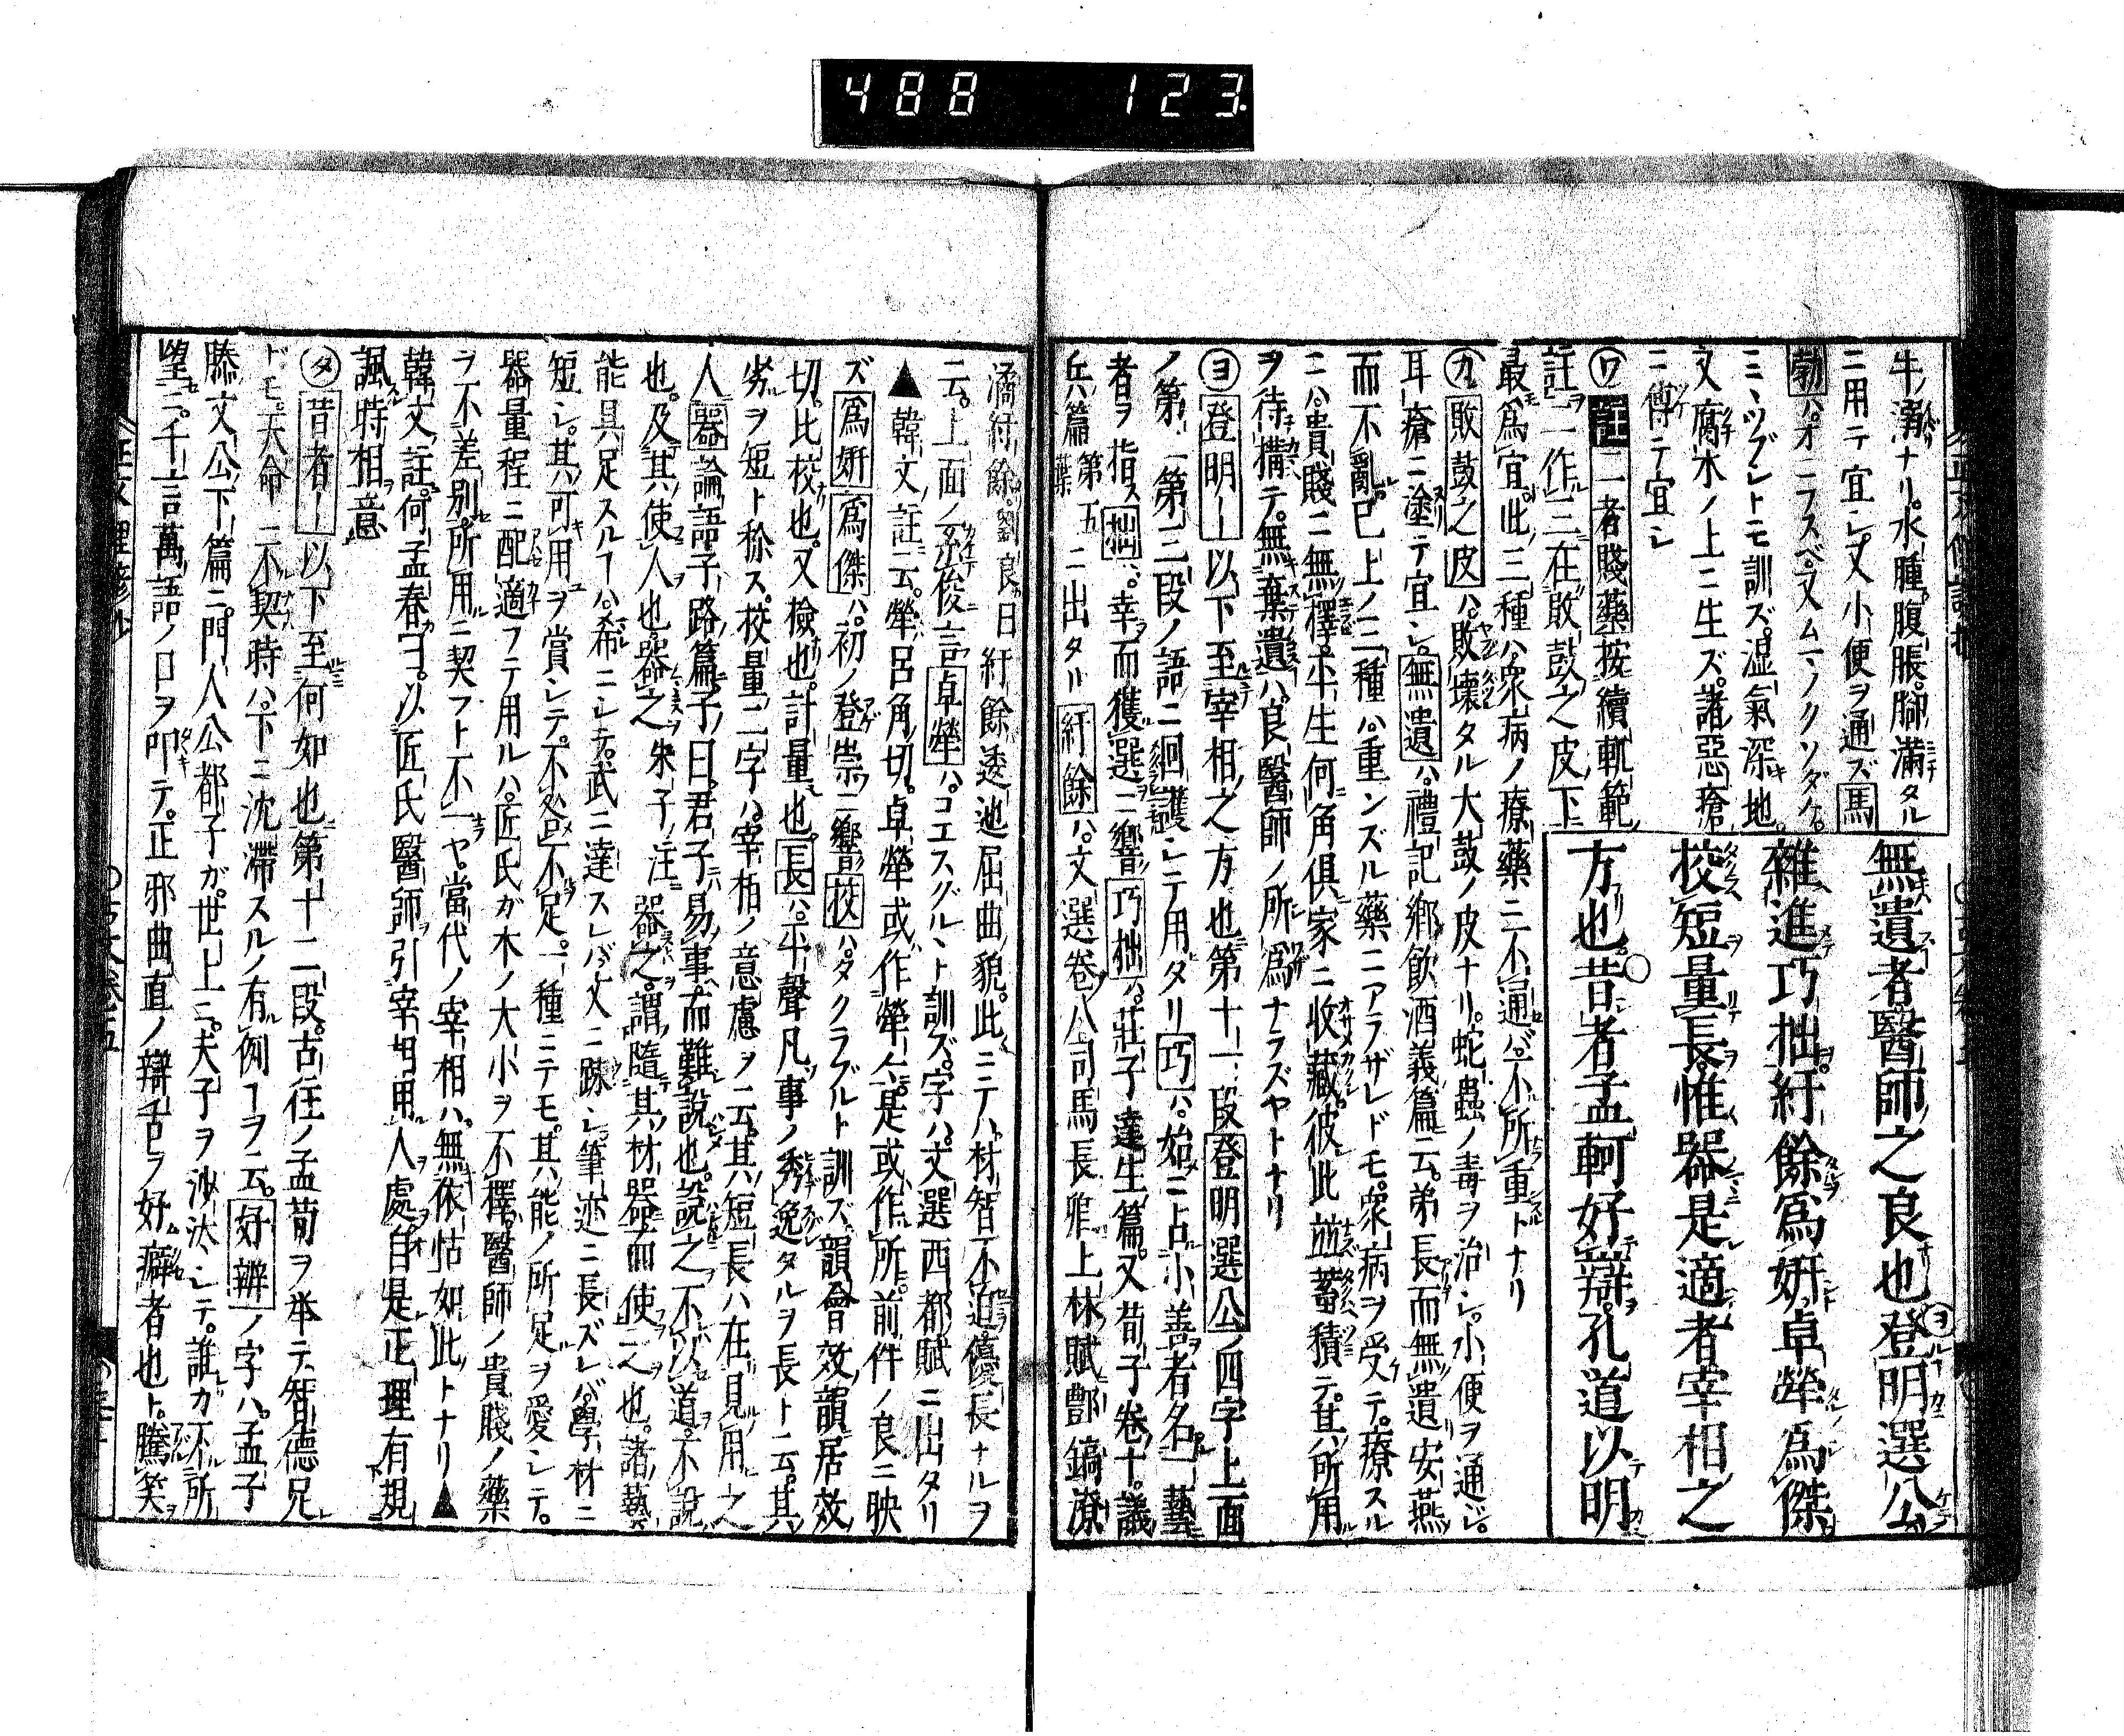 488 123
牛溲ナリ。水腫腹脹。脚滿タル
ニ用テ宜シ。又小便ヲ通ズ馬
勃ハ。オニフスベ。又ムマノクソダケ。
ミヽツブントモ訓ズ。湿氣深キ地。
又腐木ノ上ニ生ズ。諸惡瘡
ニ傅テ宜シ
無遺者。醫師之良也。登明選公。
雜進巧拙。紆餘爲妍。卓犖爲傑。
校短量長。惟器是適者。宰相之
方也。○昔者孟軻好辯。孔道以明
㋻註二一者賤藥按續軌範ノ
註ヲ一作三在敗鼓之皮下
最爲宜。此三種ハ。衆病ノ療藥ニ不通バ。不所重トナリ
㋕敗鼓之皮ハ。敗壞タル大鼓ノ皮ナリ。蛇蟲ノ毒ヲ治シ。小便ヲ通ジ。
耳瘡ニ塗テ宜シ。無遺ハ。禮記鄕飮酒義篇云。弟長而無遺安燕
而不亂。已上ノ三種ハ。重ンズル藥ニアラザレドモ。衆病ヲ受テ。療スル
ニハ。貴賤ニ無擇。平生何角俱家ニ收藏。彼此並蓄積テ。其所用
ヲ待搆テ。無棄遺ハ。良醫師ノ所爲ナラズヤトナリ
㋵登明ー以下至宰相之方也第十一段登明選公ノ四字上面
ノ第一第三段ノ語ニ回護シテ用タリ巧ハ。始ニ占小善者名一藝
者ヲ指ス拙ハ。幸而獲選ニ響巧拙ハ。莊子達生篇。又荀子卷十。議
兵篇第五葉ニ出タル紆餘ハ。文選卷八司馬長卿上林賦酆鎬潦
潏紆餘。劉良曰紆餘逶迤屈曲貌。此ニテハ材智不迫優長ナルヲ
ニ云。上面ノ
卓犖ハ。コエスグルヽト訓ズ。字ハ。文選西都賦ニ出タリ
▲韓文註云。犖呂角切。卓犖或作犖〻。是或作所。前件ノ良ニ映
ズ爲妍爲傑ハ。初ノ登崇ニ響校ハ。タクラブルト訓ズ。韻會效韻居效
切。比校也。又檢也。計量也長ハ。平聲凡事ノ秀逸タルヲ長ト云。其
劣ヲ短ト称ス。校量二字ハ。宰相ノ意慮ヲ云。其短長ハ在見用之
人器論語子路篇子曰。君子易事而難說也。說之不以道。不說
也。及其使人也器之朱子ノ注ニ器之。謂隨其材器而使之也。諸藝
能具足スルヿハ。希ニシテ。武ニ達スレバ。文ニ踈シ。筆迹ニ長ズレバ。學材ニ
短シ。其可用ヲ賞シテ。不咎不足。一種ニテモ。其能ノ所足ヲ愛シテ。
器量程ニ配適フテ用ルハ。匠氏ガ木ノ大小ヲ不擇。醫師ノ貴賤ノ藥
ヲ不差別。所用ニ契フト不一ヤ。當代ノ宰相ハ。無依怙如此トナリ▲
韓文註。何孟春曰。以匠氏醫師引宰相用人處自是正理有規
諷時相意
㋟昔者ー以下至何如也第十二段。古往ノ孟荀ヲ举テ。智德兄レ
ドモ。天命ニ不契時ハ。下ニ沈滯スルノ有例ヿヲ云。好辨ノ字ハ。孟子
滕文公下篇ニ。門人公都子ガ。世上ニ。夫子ヲ沙汰シテ。誰カ不所
望ニ。千言萬語ノ口ヲ叩テ。正邪曲直ノ辯舌ヲ好癖者也ト。騰笑